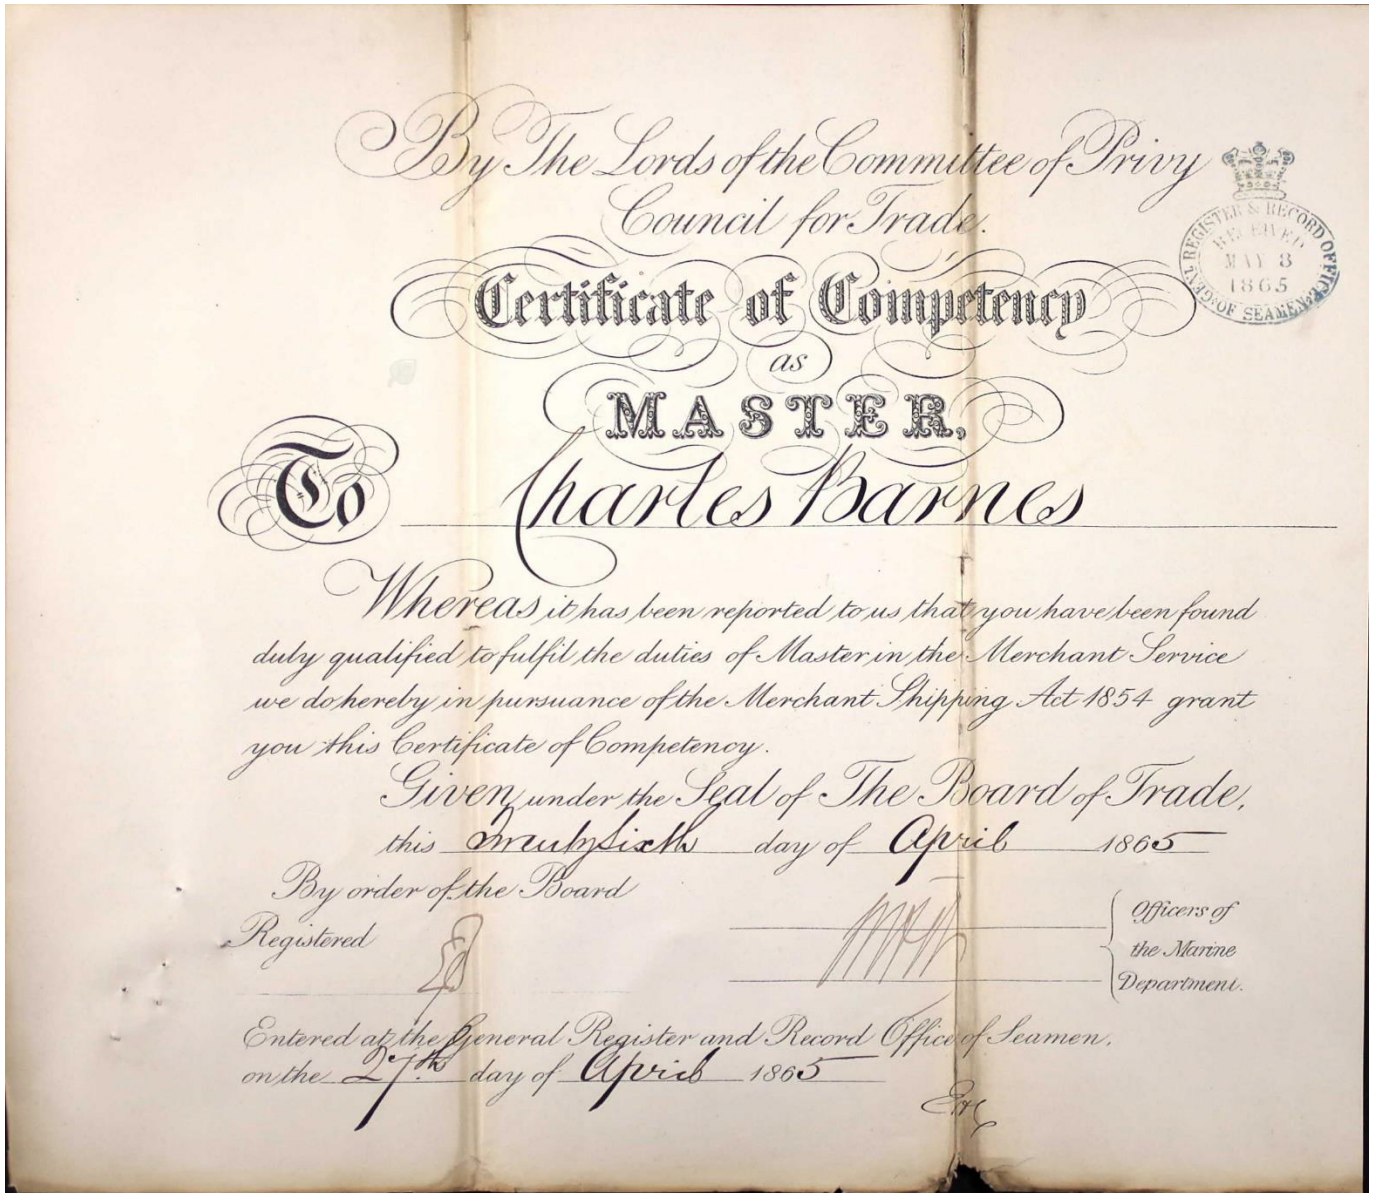 By The Lords of the Committee of Privy
Council for Trade.
GENL REGISTER & RECORD OFFICE OF SEAMEN
RECEIVED
MAY 8
1865
Certificate of Competency
as
MASTER,
To Charles Barnes
Whereas it has been reported to us that you have been found
duly qualified to fulfil the duties of Master in the Merchant Service
we do hereby in pursuance of the Merchant Shipping Act 1854 grant
you this Certificate of Competency.
Given under the Seal of The Board of Trade,
this Twenty Sixth day of April 1865
By order of the Board
Registered
Officers of
the Marine
Department.
Entered at the General Register and Record Office of Seamen,
on the 27th day of April 1865